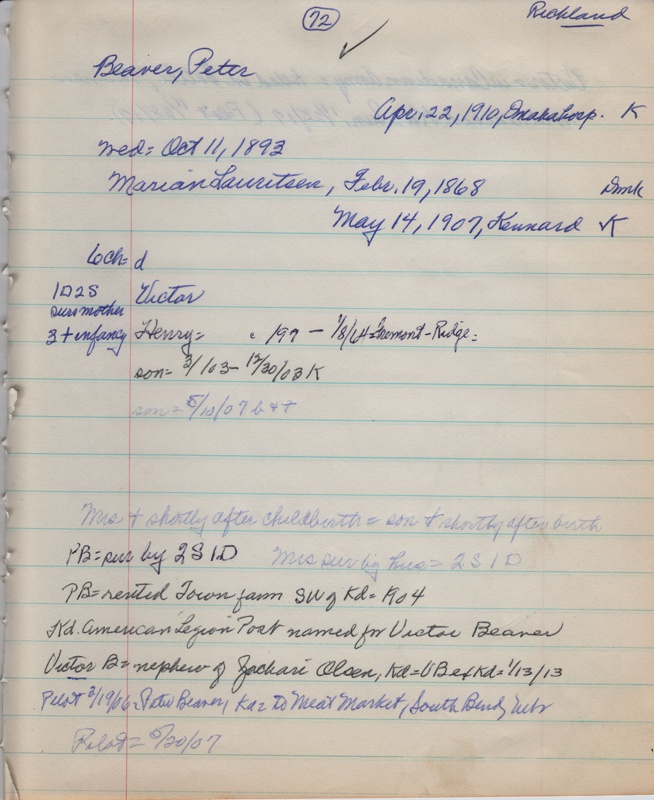 72
Richland
Beaver, Peter
Apr. 22, 1910, Omaha Corp. K
Wed= Oct 11, 1893
Marian Lauritsen, Febr. 19, 1868 Dmk
May 14, 1907, Kennard K
6ch= d
1D2S Victor
surv mother
3 + infancy Henry= 197 — 1/8/64=Fremont-Ridge=
son= 3/1/03— 12/30/03 K
son= 5/10/07 b & +
Mrs + shortly after childbirth= son + shortly after birth
PB= sur by 2S 1D Mrs sur by hus= 2S 1D
PB= rented Town farm SW of Kd= 1904
Kd. American Legion Post named for Victor Beaver
Victor B= nephew of Zachari Olsen, Kd= VB ex Kd= 1/13/13
Pilot 3/19/06= Peter Beaver, Ka= to Meat Market, South Bend, Nebr
Pilot= 5/20/07